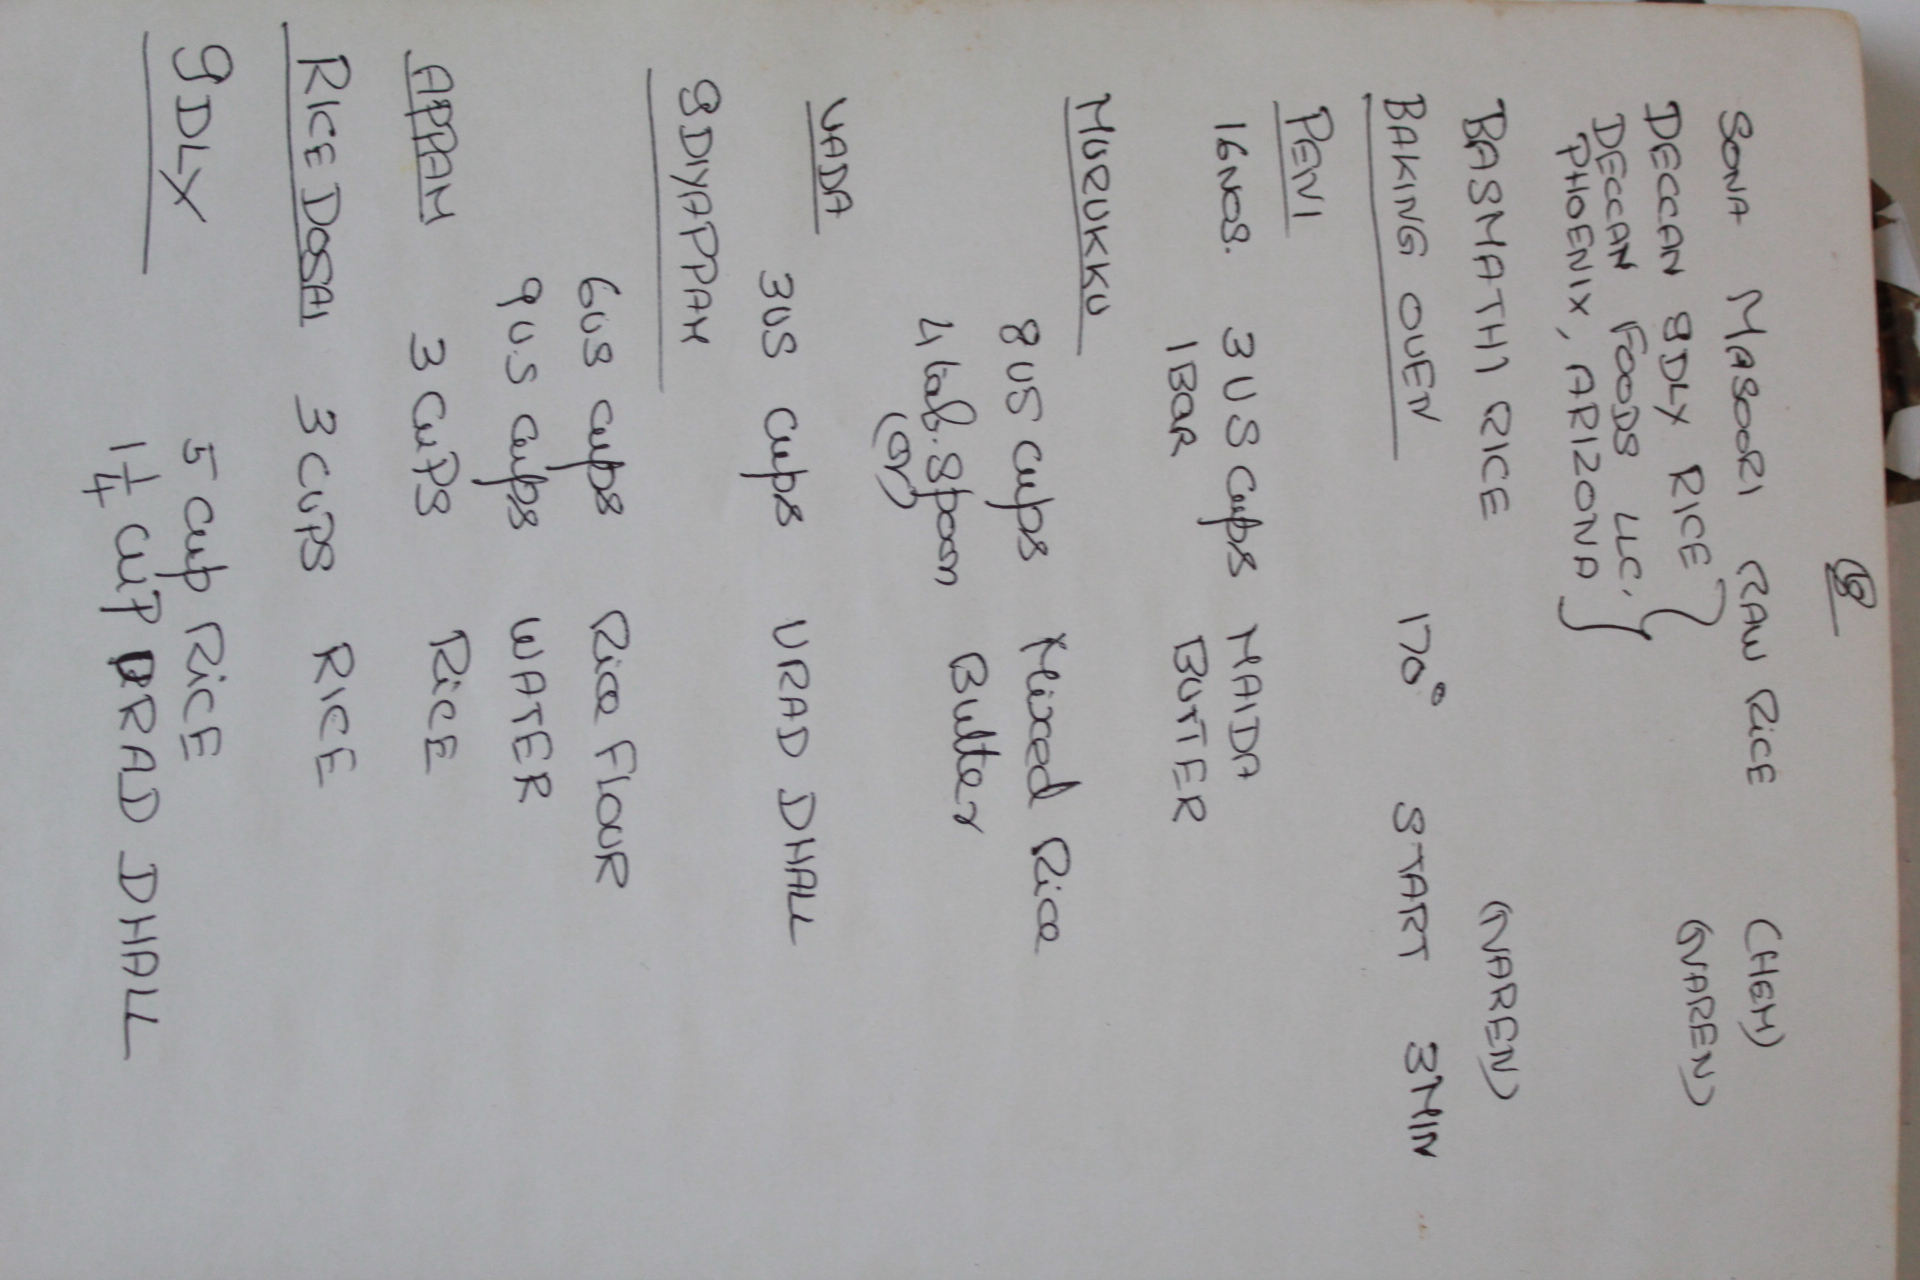 18
SONA MASOORI RAW RICE (HEM)
DECCAN IDLY RICE } (NAREN)
DECCAN FOODS LLC,
PHOENIX, ARIZONA }
BASMATHI RICE (NAREN)
BAKING OVEN 170° START 3MIN
PENI
16NOS. 3 US Cups MAIDA
1 BAR BUTTER
MURUKKU
8 US Cups Mixed Rice
4 tab. Spoon Butter
(or)
VADA
3US Cups URAD DHALL
IDIYAPPAM
6US Cups Rice FLOUR
9U.S Cups WATER
APPAM 3 CUPS RICE
RICE DOSAI 3 CUPS RICE
IDLY
5 Cup RICE
1 1/4 CUP URAD DHALL